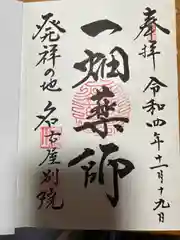 奉拝
令和四年十一月十九日
一畑薬師
発祥の地
名古屋別院